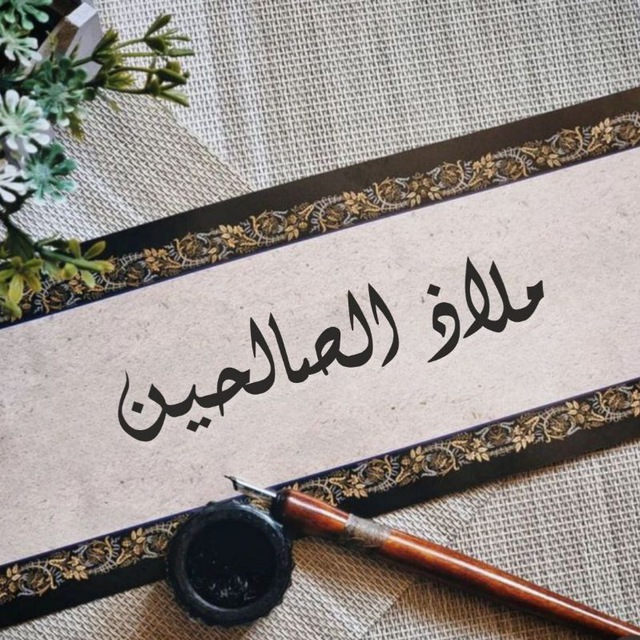 ملاذ الصالحين